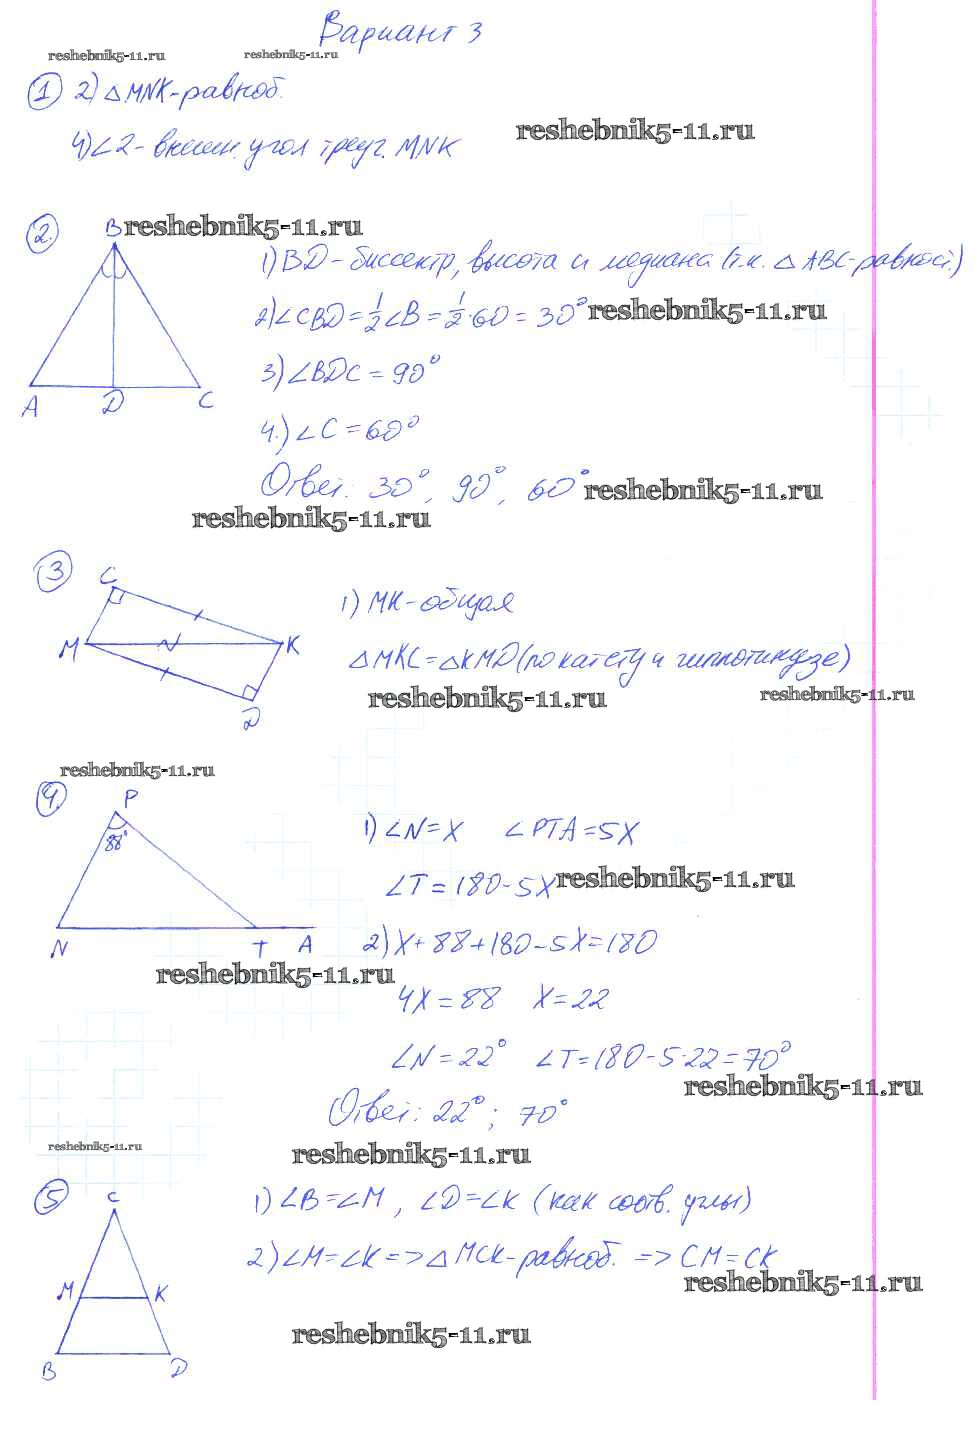 Вариант 3
reshebnik5-11.ru reshebnik5-11.ru
① 2) △MNK-равноб.
reshebnik5-11.ru
4) ∠2 - внешн. угол треуг. MNK
②. B reshebnik5-11.ru
1) BD - биссектр, высота и медиана (т.к. △ ABC-равност.)
2) ∠CBD = 1/2 ∠B = 1/2 · 60 = 30° reshebnik5-11.ru
3) ∠BDC = 90°
A D C
4.) ∠C = 60°
Ответ: 30°, 90°, 60° reshebnik5-11.ru
reshebnik5-11.ru
③ C
1) MK-общая
M K
△MKC = △KMD (по катету и гиппотинузе)
reshebnik5-11.ru reshebnik5-11.ru
D
reshebnik5-11.ru
④. P
88°
1) ∠N = X ∠PTA = 5X
∠T = 180-5X reshebnik5-11.ru
N T A
2) X + 88 + 180 - 5X = 180
reshebnik5-11.ru
4X = 88 X = 22
∠N = 22° ∠T = 180 - 5·22 = 70°
reshebnik5-11.ru
Ответ: 22°; 70°
reshebnik5-11.ru
reshebnik5-11.ru
⑤ C
1) ∠B = ∠M, ∠D = ∠K (как соотв. углы)
2) ∠M = ∠K => △MCK-равноб. => CM = CK
M K
reshebnik5-11.ru
reshebnik5-11.ru
B D